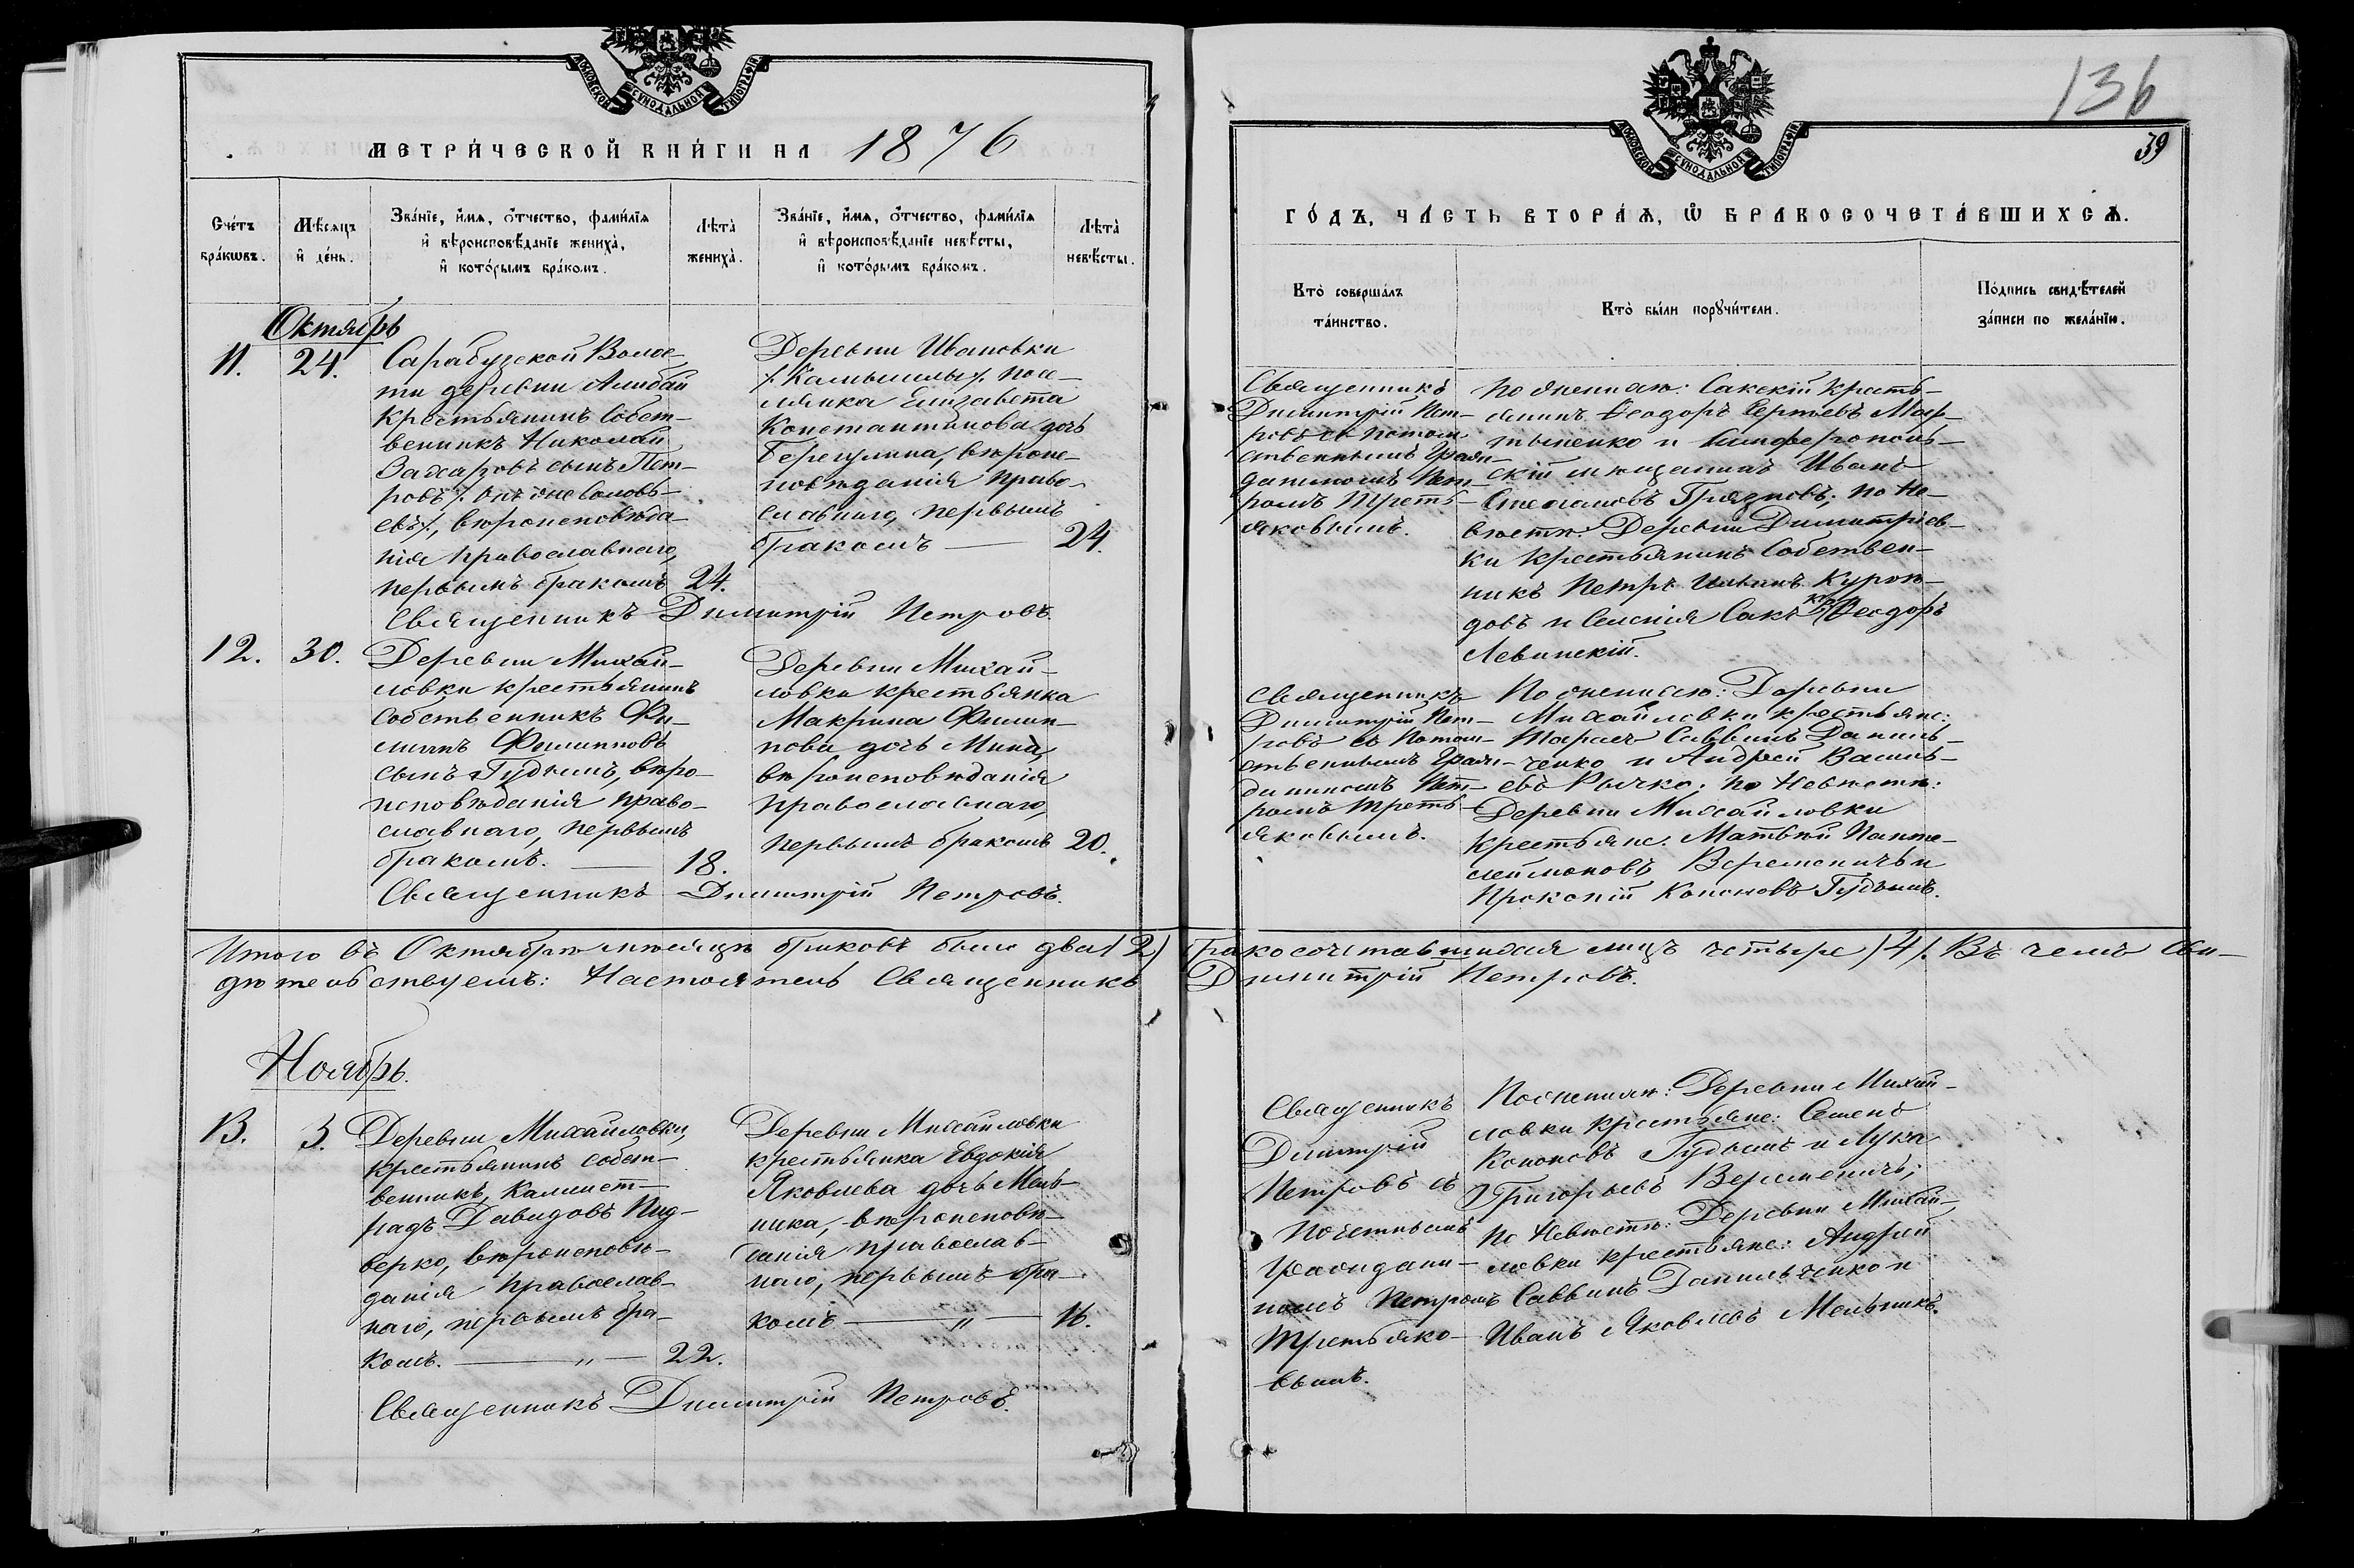 МОСКОВСКОЙ СѴНОДАЛЬНОЙ ТИПОГРАФІИ
МЕТРИ́ЧЕСКОЙ КНИ́ГИ НА 1876
Сче́тъ бра́кωвъ.
Мѣ́сяцъ и҆ де́нь.
Зва́нїе, и҆́мѧ, ѻ҆́тчество, фами́лїѧ
и҆ вѣроисповѣ́данїе жениха̀,
и҆ кото́рымъ бра́комъ.
Лѣ́та жениха̀.
Зва́нїе, и҆́мѧ, ѻ҆́тчество, фами́лїѧ
и҆ вѣроисповѣ́данїе невѣ́сты,
и҆ кото́рымъ бра́комъ.
Лѣ́та невѣ́сты.
Октябрь
11.
24.
Сарабузской Волос-
ти деревни Алибай
Крестьянинъ собст-
венникъ Николай
Захаровъ сынъ Пет-
ровъ /: онъ же Соловь-
евъ /, вѣроисповѣда-
нія православнаго,
первымъ бракомъ 24.
Деревни Ивановки
посе-
лянка Елисавета
Константинова дочь
вѣроис-
повѣданія право-
славнаго, первымъ
бракомъ — 24.
Священникъ Димитрій Петровъ.
12.
30.
Деревни Михай-
ловки крестьянинъ
собственникъ Фи-
липпъ Филипповъ
сынъ Гудымъ, вѣро-
исповѣданія право-
славнаго, первымъ
бракомъ. — 18.
Деревни Михай-
ловки крестьянка
Макрина Филип-
пова дочь Мина,
вѣроисповѣданія
православнаго,
первымъ бракомъ 20.
Священникъ Димитрій Петровъ.
Итого въ Октябрѣ мѣсяцѣ браковъ было два /2/ бракосочетавшихся лицъ четыре /4/. Въ чемъ сви-
дѣтельствуемъ: Настоятель Священникъ Димитрій Петровъ.
Ноябрь.
13.
3.
Деревни Михайловки,
крестьянинъ собст-
венникъ, Калист-
ратъ Давидовъ Пид-
верко, вѣроисповѣ-
данія православ-
наго, первымъ бра-
комъ. — „ — 22.
Деревни Михайловки
крестьянка Евдокія
Яковлева дочь Мель-
ника, вѣроисповѣ-
данія православ-
наго, первымъ бра-
комъ — „ — 16.
Священникъ Димитрій Петровъ.
136
39
МОСКОВСКОЙ СѴНОДАЛЬНОЙ ТИПОГРАФІИ
ГО́ДЪ, ЧА́СТЬ ВТОРА́Ѧ, Ѽ БРАКОСОЧЕТА́ВШИХСѦ.
Кто̀ соверша́лъ
та́инство.
Кто̀ бы́ли порꙋчи́тели.
По́дпись свидѣ́телей
за́писи по жела́нїю.
Священникъ
Димитрій Пет-
ровъ съ потом-
ственнымъ Граж-
даниномъ Пет-
ромъ Треть-
яковымъ.
По жениху: Сакскій кресть-
янинъ Ѳеодоръ Сергіевъ Мар-
тыненко и Симферополь-
скій мѣщанинъ Иванъ
Степановъ Грязновъ; по Не-
вѣстѣ: Деревни Димитріев-
ки крестьянинъ Собствен-
никъ Петръ Ильинъ Куроѣ-
довъ и Селенія Сакъ кр. Ѳеодоръ
Левинскій.
Священникъ
Димитрій Пет-
ровъ съ Потом-
ственнымъ Граж-
даниномъ Пет-
ромъ Треть-
яковымъ.
По жениху: Деревни
Михайловки крестьяне:
Тарасъ Саввинъ Даниль-
ченко и Андрей Василь-
евъ Рычко; по Невѣстѣ:
Деревни Михайловки
крестьяне: Матвѣй Панте-
леймоновъ Веременичъ и
Прокопій Кононовъ Гудымъ.
Священникъ
Димитрій
Петровъ съ
Почетнымъ
Граждани-
номъ Петромъ
Третьяко-
вымъ.
По жениху: Деревни Михай-
ловки крестьяне: Семенъ
Кононовъ Гудымъ и Лука
Григорьевъ Веременичъ;
по Невѣстѣ: Деревни Михай-
ловки крестьяне: Андрей
Саввинъ Данильченко и
Иванъ Яковлевъ Мельникъ.